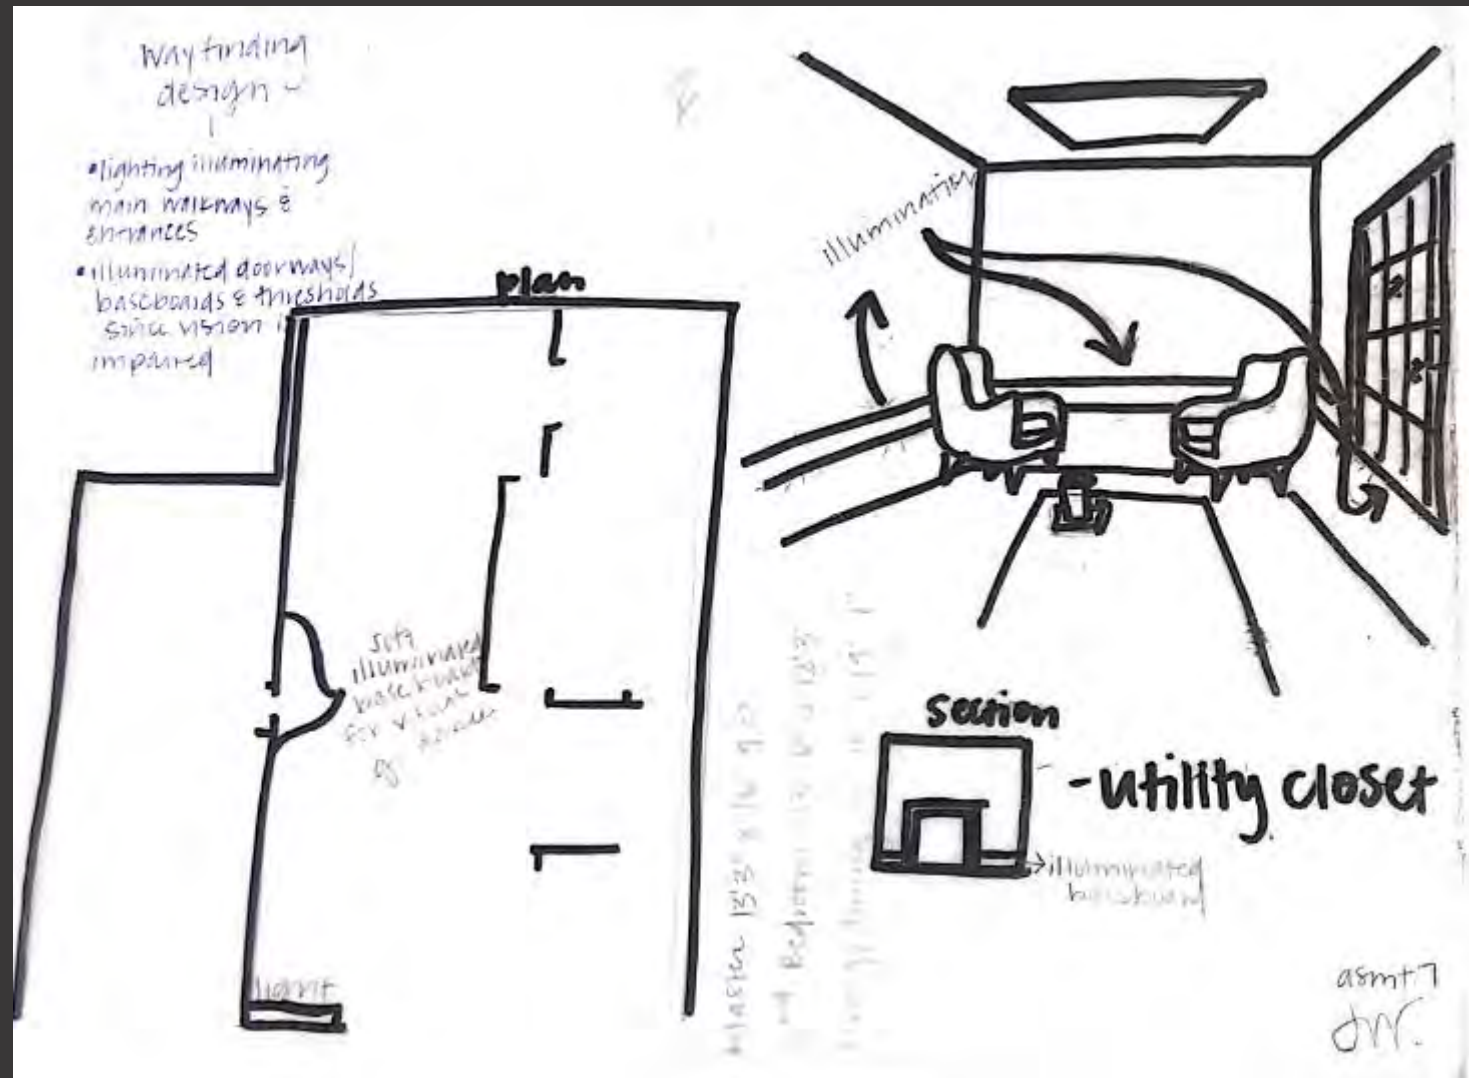 Wayfinding
design -
• lighting illuminating
main walkways &
entrances
• illuminated doorways/
baseboards & thresholds
since vision is
impaired
plan
soft
illuminated
baseboards
for visual
light
illumination
section
-utility closet
illuminated
baseboard
master 13'3" x
Bedroom
asmt 7